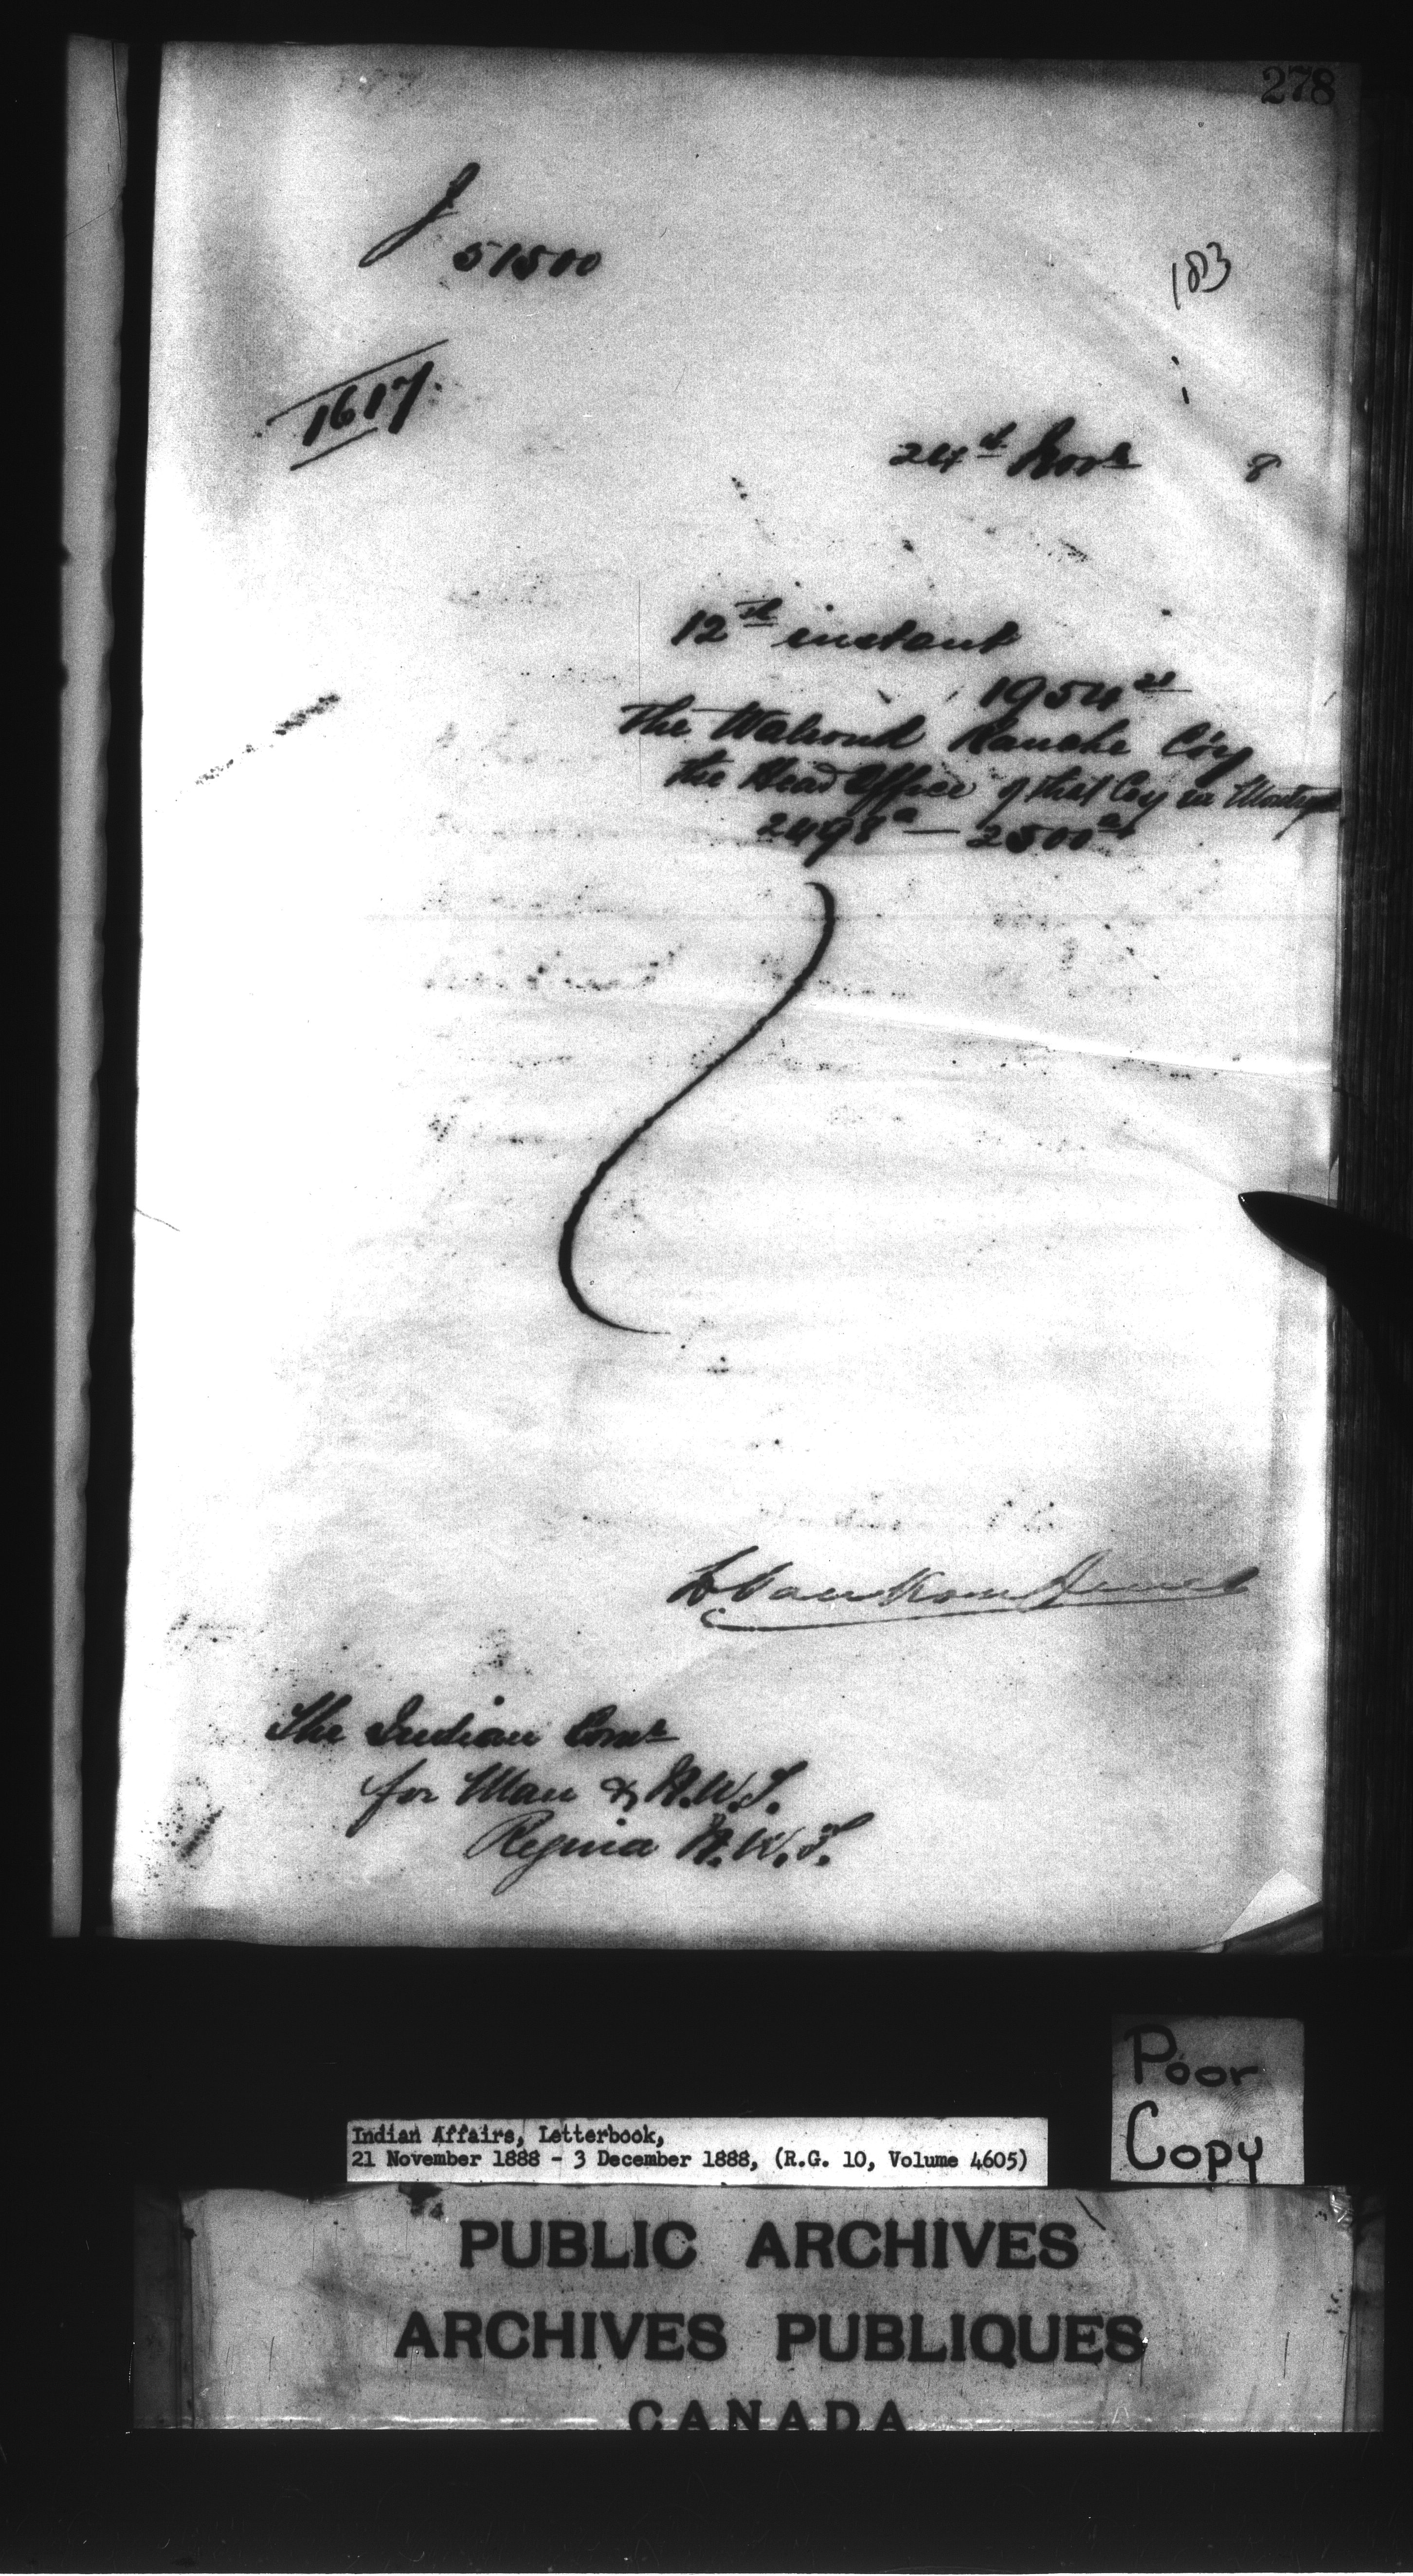 278
J
51500
183
1617.
24th Novr 8
12th instant
1954 21
The Walrond Ranche Co'y
the Head Office of that Coy in
2498a — 2500a
L Vankoughnet
The Indian Comr
for Man & N.W.T.
Regina N.W.T.
Poor
Copy
Indian Affairs, Letterbook,
21 November 1888 - 3 December 1888, (R.G. 10, Volume 4605)
PUBLIC ARCHIVES
ARCHIVES PUBLIQUES
CANADA